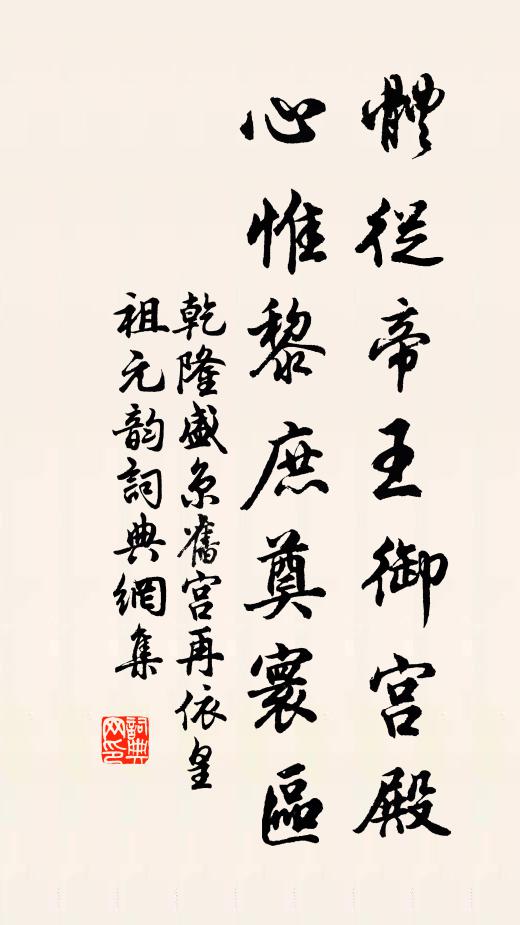 體從帝王御宮殿
心惟黎庶奠寰區
乾隆盛京舊宮再依皇
祖元韵詞典網集
詞典
网印